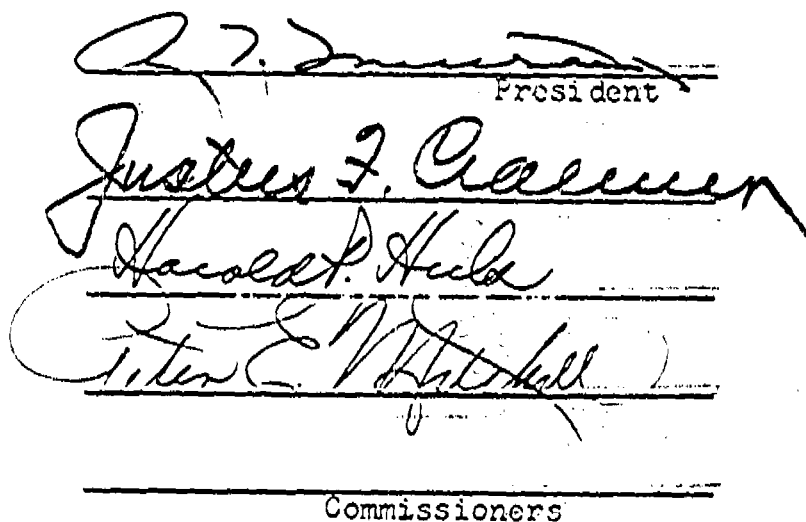 President
Justus F. Craemer
Harold P. Huls
Peter E. Mitchell
Commissioners